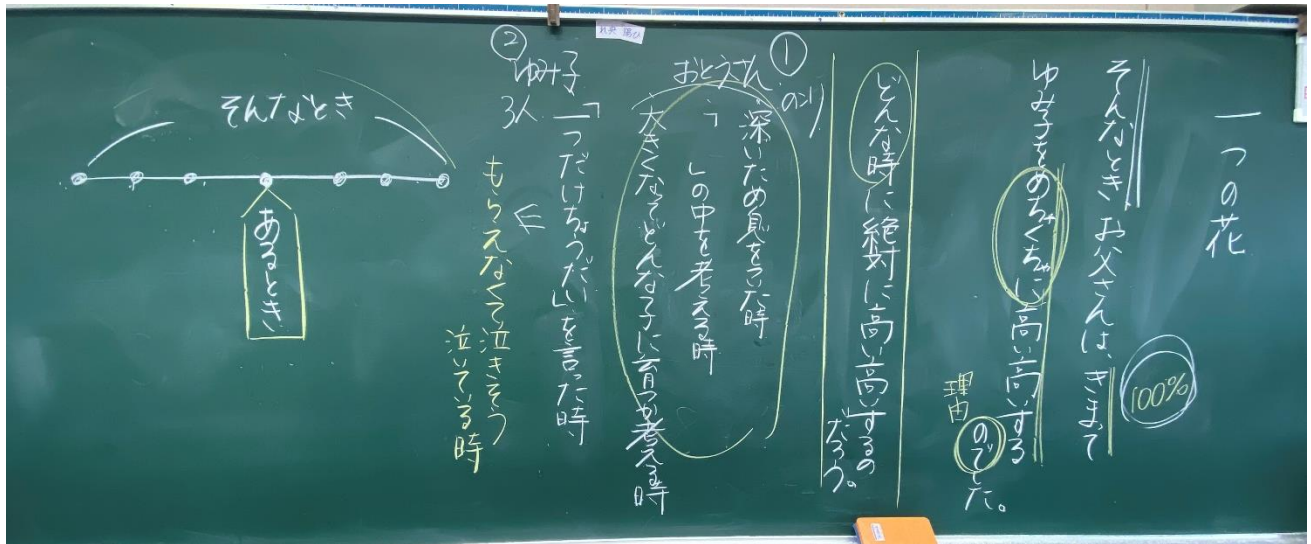 一つの花
そんなとき お父さんは、きまって
100%
ゆみ子をめちゃくちゃに高い高いする
のでした。
理由
どんな時に絶対に高い高いするの
だろう。
①
のり
おとうさん
深いため息をついた時
「　」の中を考える時
大きくなってどんな子に育つか考える時
②
ゆみ子
3人
「一つだけちょうだい」を言った時
もらえなくて泣きそう
泣いている時
そんなとき
あるとき